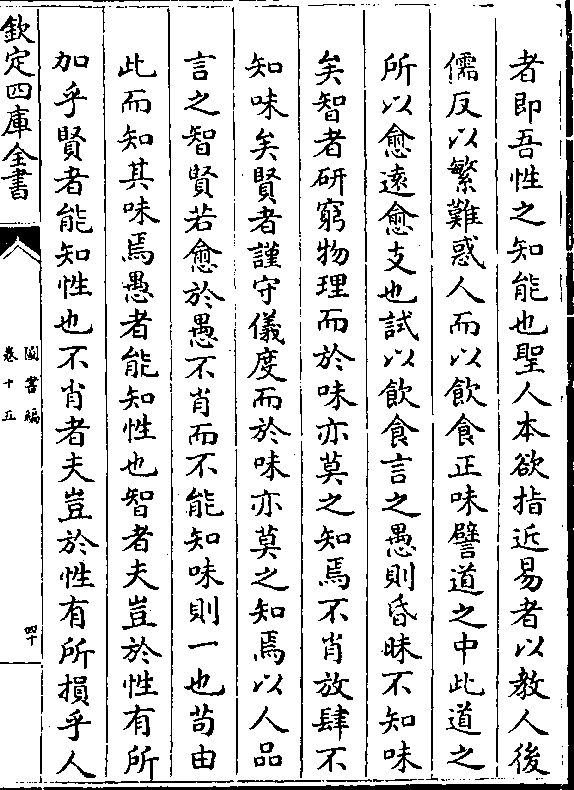 者即吾性之知能也聖人本欲指近易者以教人後
儒反以繁難惑人而以飲食正味譬道之中此道之
所以愈遠愈支也試以飲食言之愚則昏昧不知味
矣智者研窮物理而於味亦莫之知焉不肖放肆不
知味矣賢者謹守儀度而於味亦莫之知焉以人品
言之智賢若愈於愚不肖而不能知味則一也苟由
此而知其味焉愚者能知性也智者夫豈於性有所
加乎賢者能知性也不肖者夫豈於性有所損乎人
欽定四庫全書
圖書編
卷十五
四十